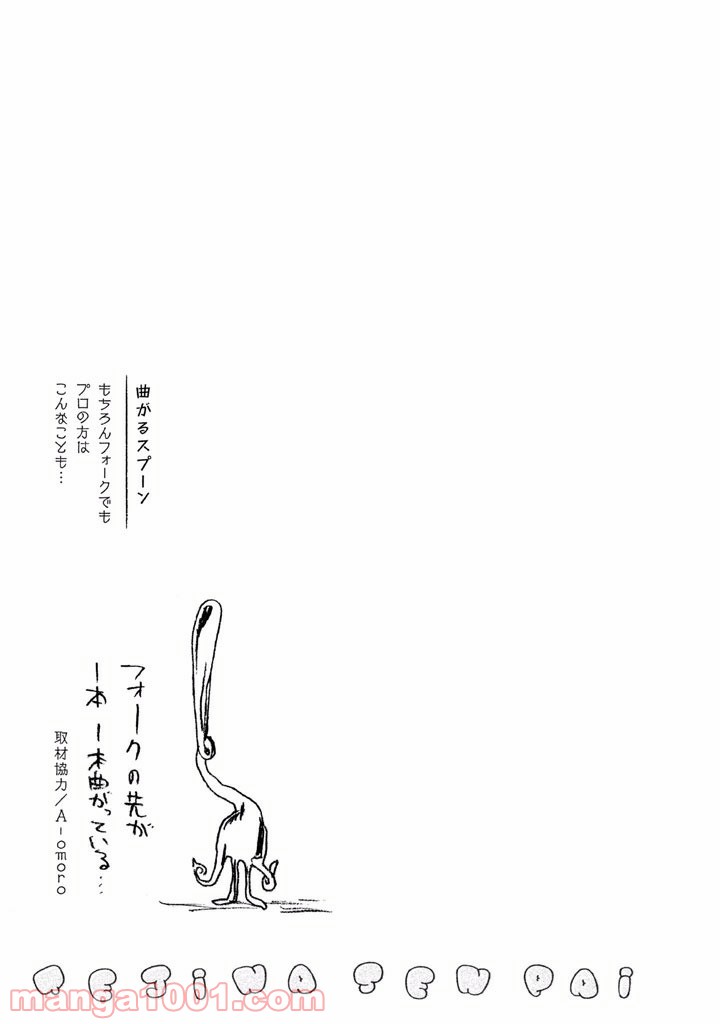 曲がるスプーン
もちろんフォークでも
プロの方は
こんなことも…
フォークの先が
一本一本曲がっている…
取材協力／A-omoro
TEJINA SENPAI
manga1001.com